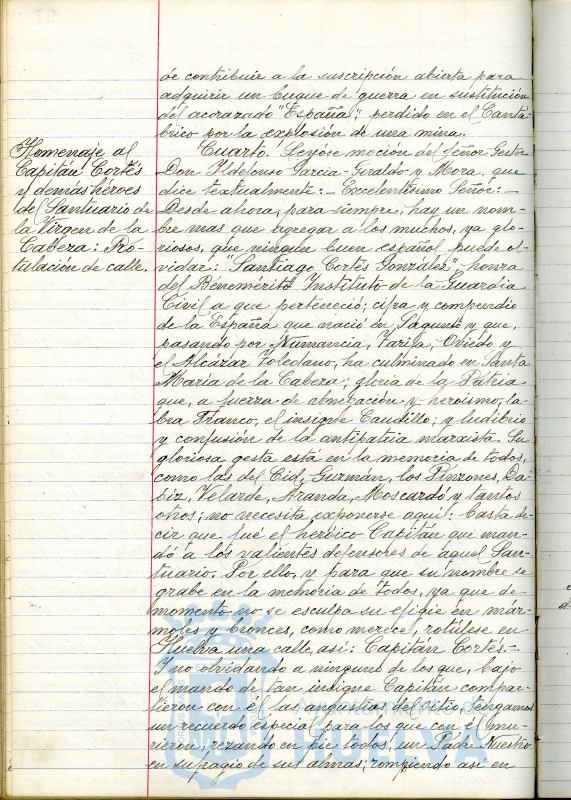 de contribuir a la suscripción abierta para
adquirir un buque de guerra en sustitución
del acorazado "España", perdido en el Cantá-
brico por la explosión de una mina.
Homenaje al
Capitán Cortés
y demás héroes
del Santuario de
la Virgen de la
Cabeza: Ro-
tulación de calle.
Cuarto. Leyóse moción del Señor Gestor
Don Ildefonso García-Giraldo y Mora, que
dice textualmente:- Excelentísimo Señor:-
Desde ahora, para siempre, hay un nom-
bre mas que agregar a los muchos, ya glo-
riosos, que ningun buen español puede ol-
vidar: "Santiago Cortés González", honra
del Benemérito Instituto de la Guardia
Civil a que perteneció; cifra y compendio
de la España que nació en Sagunto y que,
pasando por Numancia, Tarifa, Oviedo y
el Alcázar Toledano, ha culminado en Santa
María de la Cabeza; gloria de la Patria
que, a fuerza de abnegación y heroismo, la-
bra Franco, el insigne Caudillo; y ludibrio
y confusión de la antipatria marxista. Su
gloriosa gesta está en la memoria de todos,
como las del Cid, Guzmán, los Pinzones, Da-
oiz, Velarde, Aranda, Moscardó y tantos
otros; no necesita exponerse aquí: basta de-
cir que fué el heróico Capitán que man-
dó a los valientes defensores de aquel San-
tuario. Por ello, y para que su nombre se
grabe en la memoria de todos, ya que de
momento no se esculpa su efigie en már-
moles y bronces, como merece, rotúlese en
Huelva una calle así: Capitán Cortés.-
Y no olvidando a ninguno de los que, bajo
el mando de tan insigne Capitán compar-
tieron con él las angustias del sitio, tengamos
un recuerdo especial para los que con él mu-
rieron, rezando en pie todos, un Padre Nuestro
en sufragio de sus almas; rompiendo así en